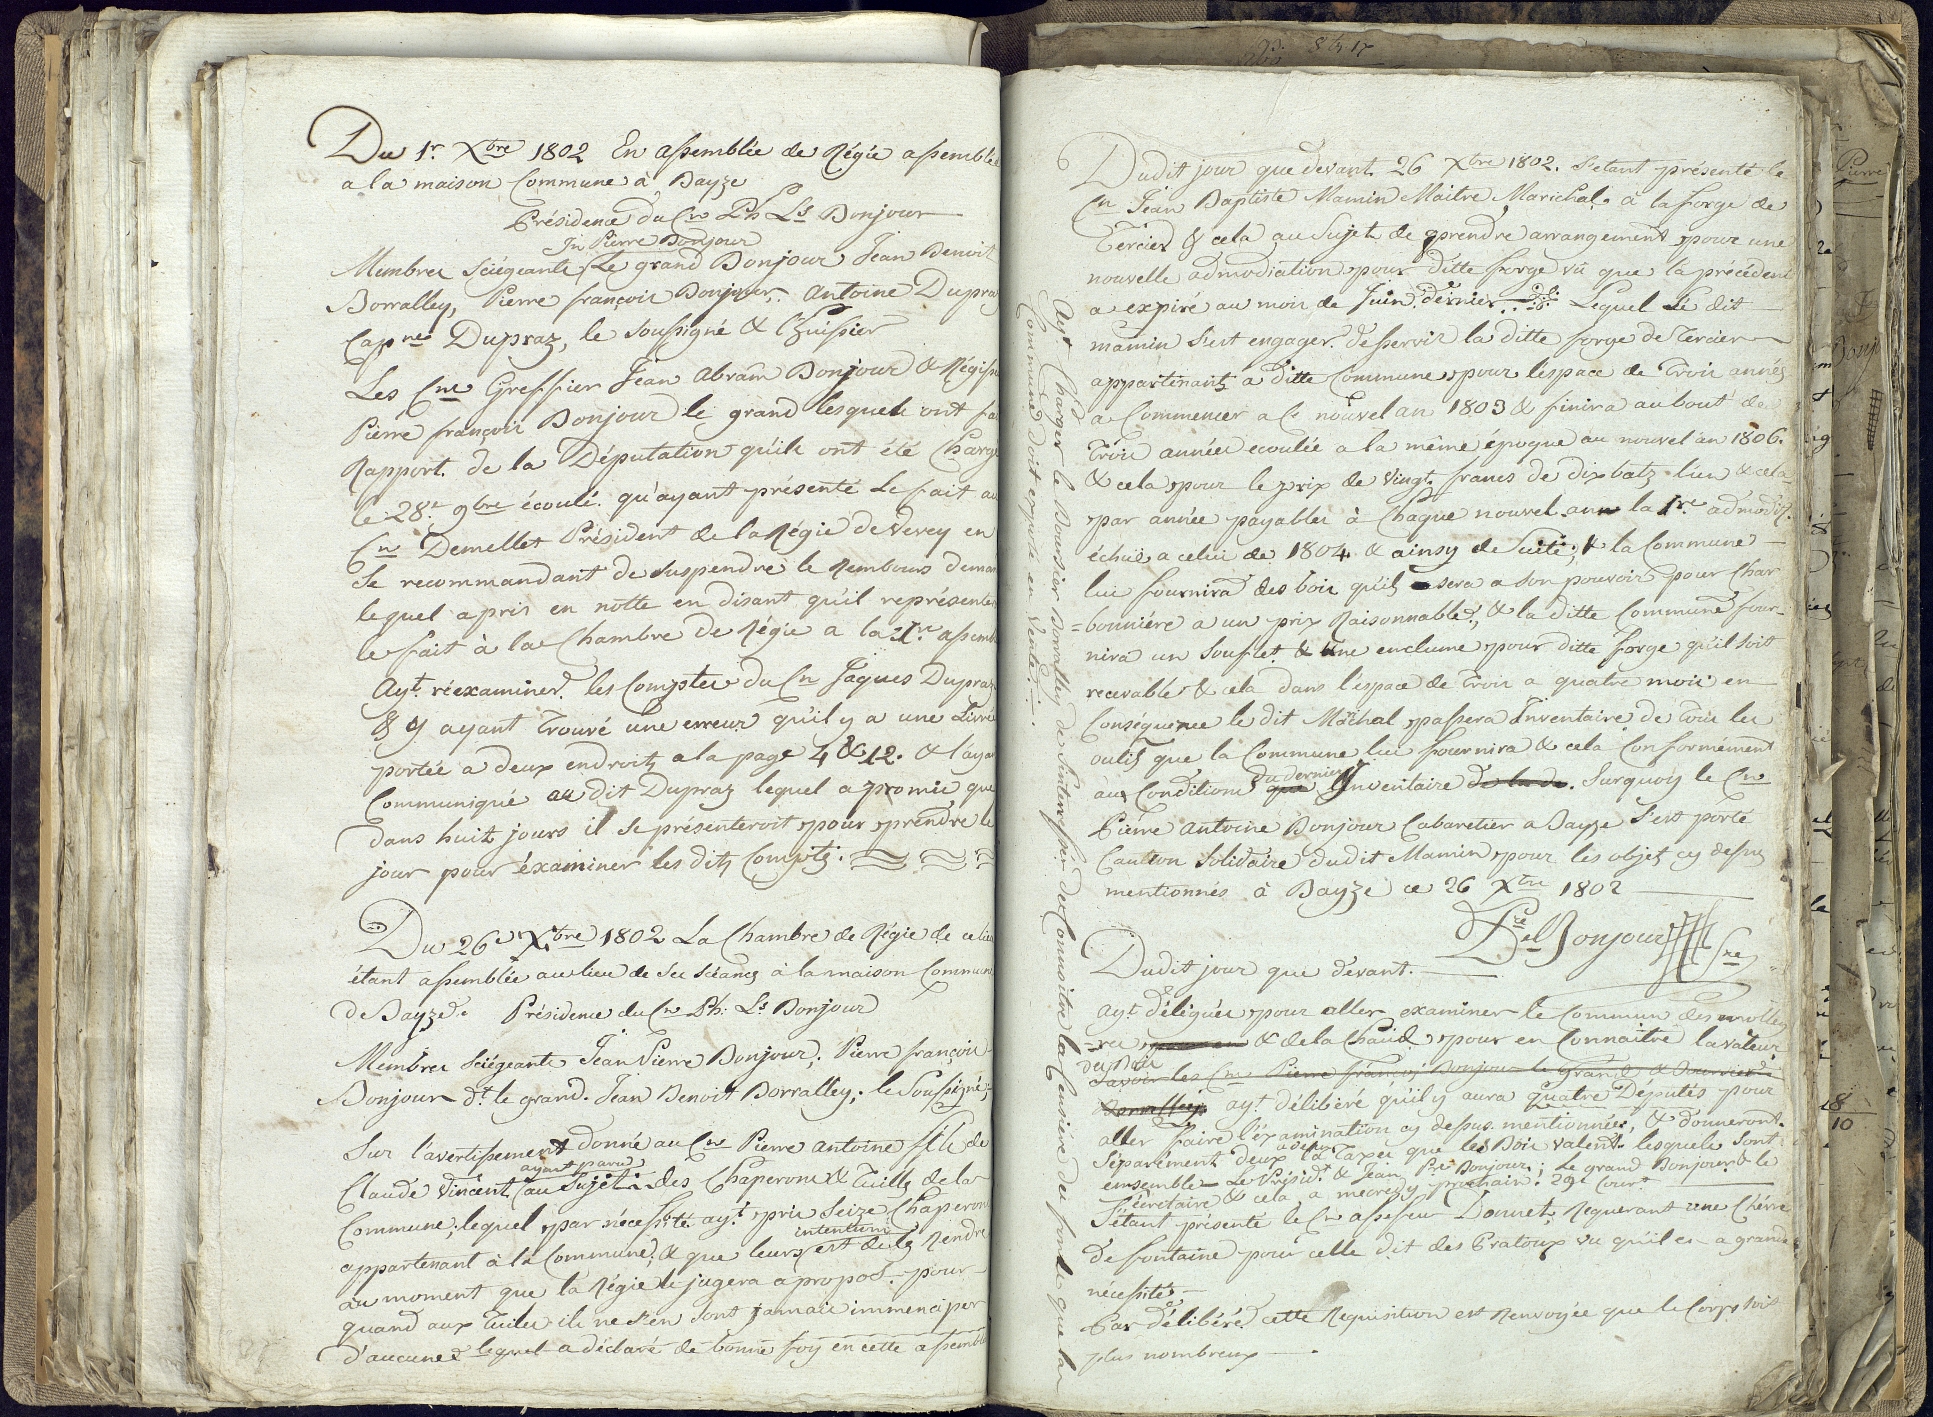 Du 1r. Xbre 1802 En assemblée de Régie assemblée
a la maison Commune à Bayze
Présidence du Cn Ph Ls Bonjour
Jn Pierre Bonjour
Membres Sciégeants Le grand Bonjour Jean Benoit
Borralley, Pierre françois Bonjour. Antoine Dupra
Dupraz, le Soussigné & l'huissier
Les Cns Greffier Jean Abram Bonjour & Régiss
Pierre françois Bonjour le grand lesquels ont fa
Rapport. de la Députation quils ont été Chargé
le 28e 9bre écoulé. qu'ayant présenté Le fait au
Cn Demellet Président de la Régie de Vevey en
Se recommandant de suspendre le Rembours deman
lequel a pris en notte en disant qu'il représenter
le fait à la Chambre de Régie a la 1re assemb
Ayt. réexaminer. les Comptes du Cn Jaques Dupraz
& y ayant Trouvé une erreur qu'il y a une Livre
portée a deux endroits a la page 4 & 12. & l'aya
Communiqué au dit Dupraz lequel a promis que
dans huit jours il Se présenteroit pour prendre le
jour pour éxaminer les dits Compts.
Du 26e Xbre 1802 La Chambre de Régie de ce lieu
étant assemblée au lieu de Ses Séances à la maison Commune
de Bayze. Présidence du Cn Ph: Ls Bonjour
Membres Sciégeants Jean Pierre Bonjour; Pierre françois
Bonjour dt. le grand. Jean Benoit Borralley; le Soussigné;
Sur l'avertissement donné au Cn Pierre Antoine fils de
ayant paru
Claude Vincent au Sujet des Chaperons & Tuilles de la
Commune; lequel par nécessité ayt pris Seize Chaperons
intention
appartenant à la Commune; & que leurs est de les Rendre
au moment que la Régie le jugera apropos. pour
quand aux Tuiles ils ne s'en sont jamais immencipor
d'aucunes lequel a déclaré de bonne foy en cette assemblé
Dudit jour que devant 26 Xbre 1802. S'etant présenté le
Cn Jean Baptiste Mamin Maitre Marichal. à la forge de
Tercier & cela au Sujet de prendre arrangement pour une
nouvelle admodiation pour ditte forge vû que la précédent
a expiré au mois de Juin dernier. Lequel Le dit
mamin S'est engager. desservir la ditte forge de Tercier
appartenants a ditte Commune pour l'espace de Trois annés
a Commencer a ce nouvel an 1803 & finira au bout de
Trois années ecoulée a la même époque au nouvel an 1806.
& cela pour le prix de Vingt francs de dix batz l'un & cela
par année payables à Chaque nouvel an la 1re admod
échuë a celui de 1804 & ainsy de Suite; & la Commune
lui fournira des bois qu'il sera a Son pouvoir pour Char
=bonniére a un prix Raisonnable, & la ditte Commune four=
nira un Souflet & Une enclume pour ditte forge qu'il soit
recevable & cela dans l'espace de Trois a quatre mois en
Conséquence le dit Mâchal passera Inventaire de Tous les
outils que la Commune lui fournira & cela Conformément
du dernier
aux Conditions que Inventaire de la de. Surquoy le Cn
Piérre Antoine Bonjour Cabaretier a Bayze S'est porté
Caution Solidaire dudit Mamin pour les objets cy dessus
mentionnés à Bayze ce 26 Xbre 1802
Bonjour Sre
Dudit jour que devant.
Ayt. délégués pour aller examiner le Commun des molley
& de la Chaid. pour en Connaitre la Valeur
des Bois
Savoir les Cns Pierre françois Bonjour le Grand & Boursier
Borralley ayt. délibéré qu'il y aura quatre Députés pour
aller faire l'éxamination cy dessus mentionnée, & donneront.
Séparément deux la Taxes que les Bois valent. lesquels Sont:
ensemble Le Présidt & Jean Pe Bonjour; Le grand Bonjour & le
Sécretaire & cela a mecredy prochain. 29e Court
S'étant présenté le Cn assesseur Donnet; Requerant une Chévre
de fontaine pour celle dit des Pratoux vu qu'il en a grande
nécessité
Par délibéré cette Requisition est Renvoyée que le Corps soit
plus nombreux
Ayt Charger le Boursier Borralley de S'interesser de Connoitre la Censiére des fonds que la
Commune doit exposé en Vente.